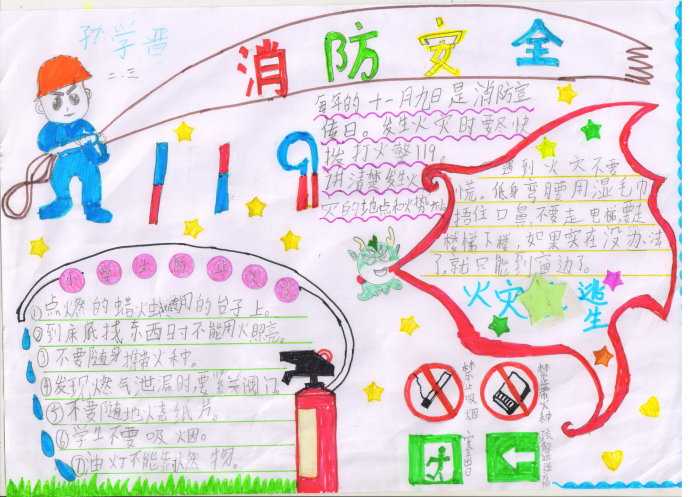 孙学晋
二.三
消防安全
119
每年的十一月九日是消防宣
传日。发生火灾时要尽快
拨打火警119。
讲清楚发生火
灾的地点和火势
遇到火灾不要
慌。低身弯腰用湿毛巾
捂住口鼻不要走电梯要走
楼梯下楼，如果实在没办法
了就只能到窗边了。
火灾 逃生
小学生防
①点燃的蜡火 用的台子上。
②到床底找东西时不能用火照亮。
③不要随身携带火种。
④发现燃气泄漏时要关阀门
⑤不要随地烧纸片。
⑥学生不要吸烟。
⑦油灯不能 燃物。
禁止吸烟
禁带火种
安全出口